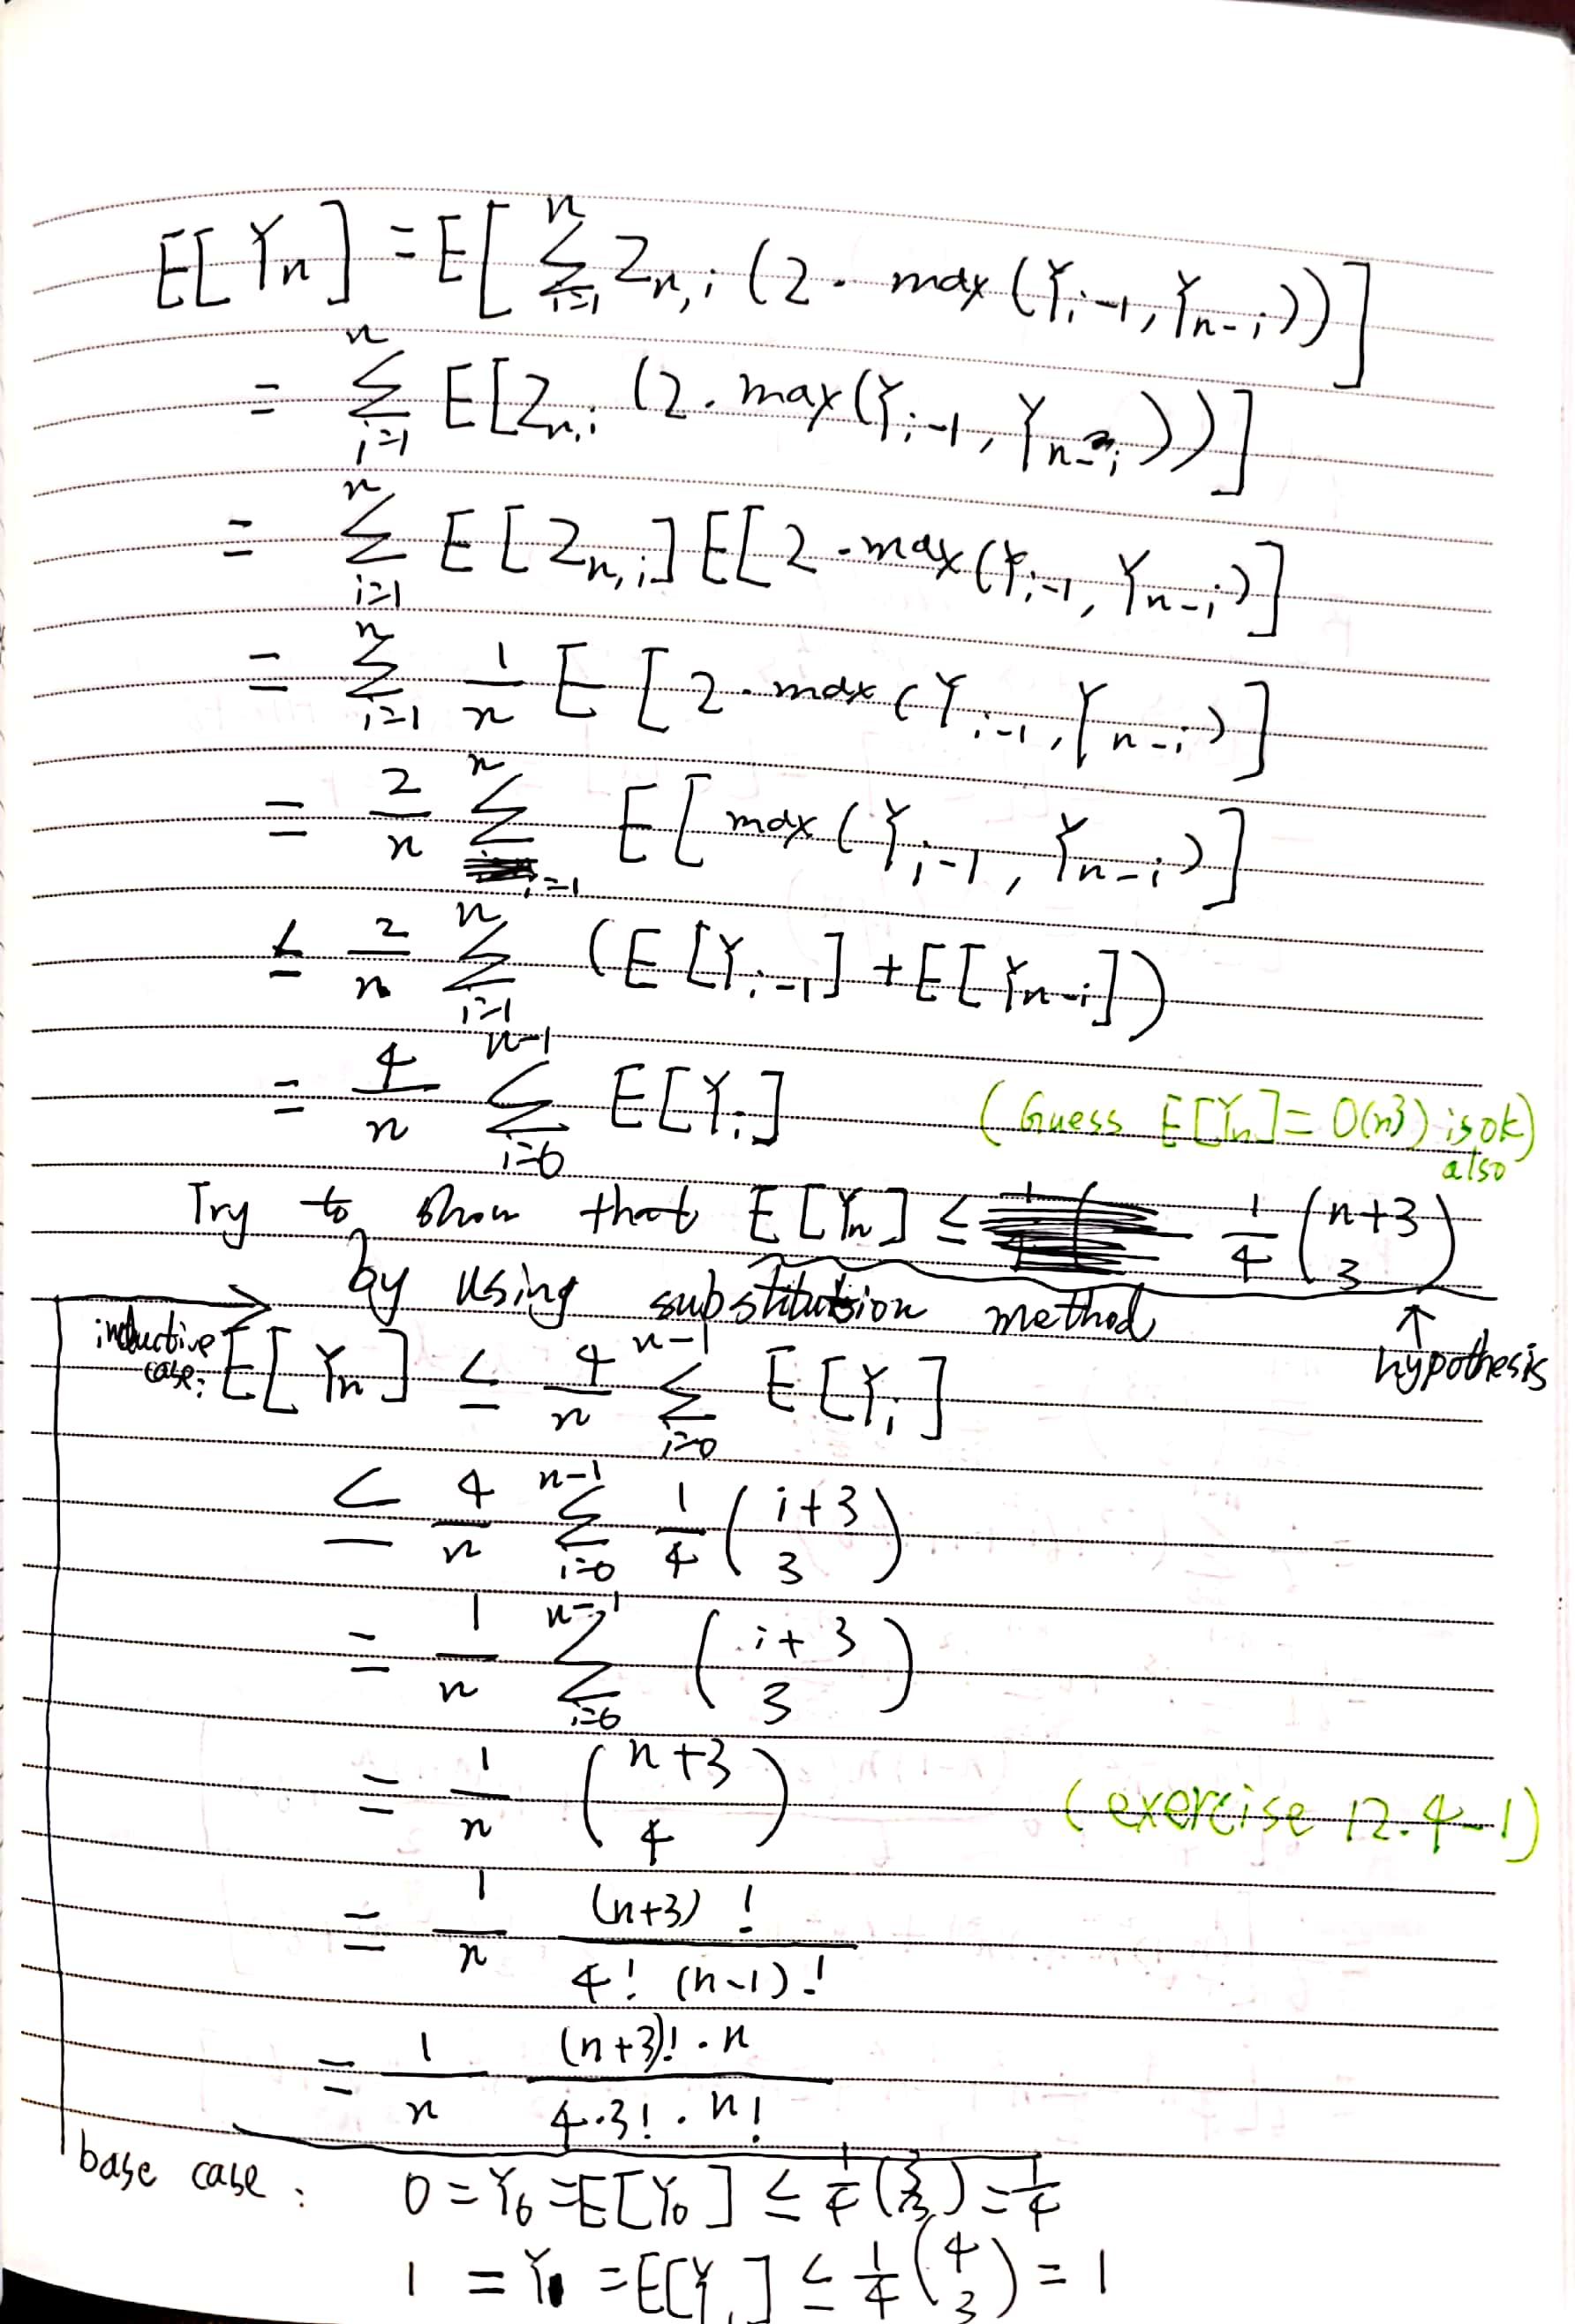 E[Yn] = E[ Σ_{i=1}^{n} Zn,i (2 · max(Yi-1, Yn-i)) ]
= Σ_{i=1}^{n} E[Zn,i (2 · max(Yi-1, Yn-i))]
= Σ_{i=1}^{n} E[Zn,i] E[2 · max(Yi-1, Yn-i)]
= Σ_{i=1}^{n} 1/n E[2 · max(Yi-1, Yn-i)]
= 2/n Σ_{i=1}^{n} E[max(Yi-1, Yn-i)]
≤ 2/n Σ_{i=1}^{n} (E[Yi-1] + E[Yn-i])
= 4/n Σ_{i=0}^{n-1} E[Yi]
(Guess E[Yn] = O(n³) is ok also)
Try to show that E[Yn] ≤ 1/4 (n+3 3)
by using substitution method
↑ hypothesis
inductive case: E[Yn] ≤ 4/n Σ_{i=0}^{n-1} E[Yi]
≤ 4/n Σ_{i=0}^{n-1} 1/4 (i+3 3)
= 1/n Σ_{i=0}^{n-1} (i+3 3)
= 1/n (n+3 4) (exercise 12.4-1)
= 1/n (n+3)! / 4! (n-1)!
= 1/n (n+3)! · n / 4 · 3! · n!
base case : 0 = Y0 = E[Y0] ≤ 1/4 (3 3) = 1/4
1 = Y1 = E[Y1] ≤ 1/4 (4 3) = 1